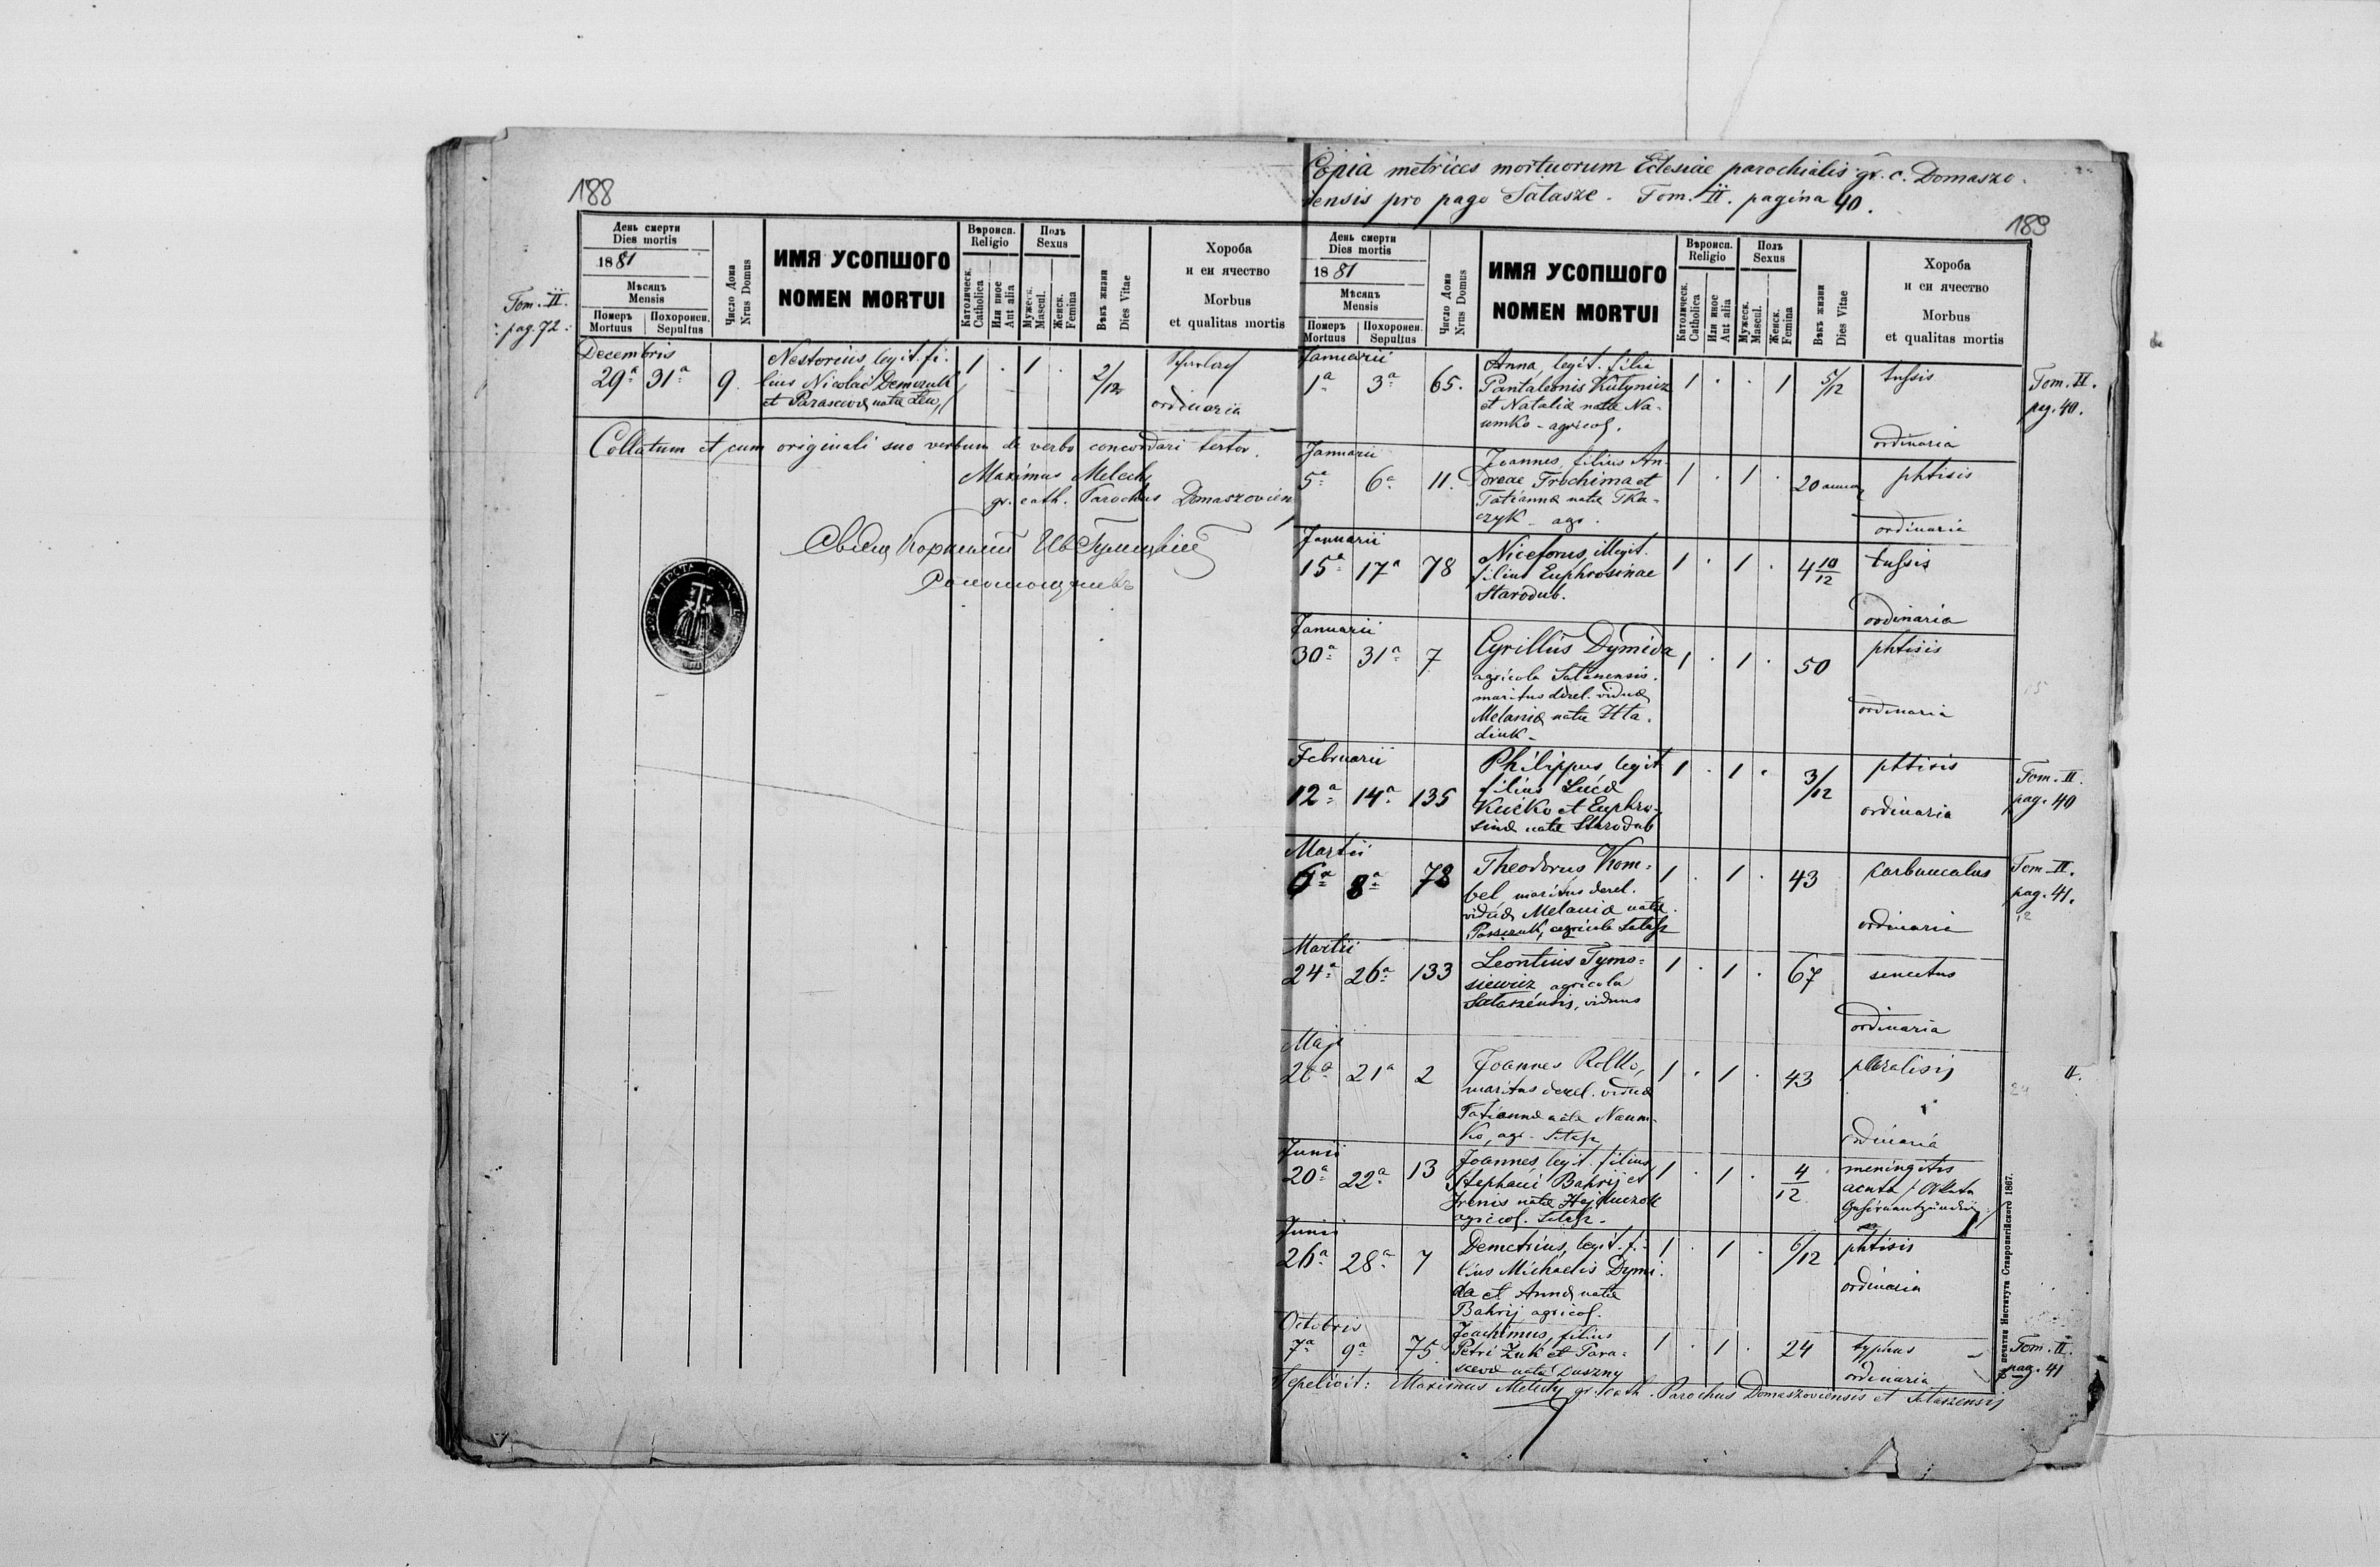 188
Tom. II.
pag. 72.
День смерти
Dies mortis
1881
Мѣсяць
Mensis
Померъ
Mortuus
Похоронен.
Sepultus
Число Дома
Nrus Domus
ИМЯ УСОПШОГО
NOMEN MORTUI
Вѣроисп.
Religio
Католическ.
Catholica
Или иное
Aut alia
Полъ
Sexus
Мужеск.
Mascul.
Женск.
Femina
Вѣкъ жизни
Dies Vitae
Хороба
и еи ячество
Morbus
et qualitas mortis
Decembris
29a 31a 9. Nestorius, legit. fi-
lius Nicolai Demczuk
et Parascevæ natæ Leu,
1 . 1 . 2/12
Scharlach
ordinaria
Collatum et cum originali suo verbum de verbo concordari testor.
Maximus Melech
gr. cath. Parochus Domaszovien
Copia metrices mortuorum Eclesiae parochialis gr. c. Domaszo
iensis pro pago Sałasze. Tom. II. pagina 40.
189
День смерти
Dies mortis
1881
Мѣсяць
Mensis
Померъ
Mortuus
Похоронен.
Sepultus
Число Дома
Nrus Domus
ИМЯ УСОПШОГО
NOMEN MORTUI
Вѣроисп.
Religio
Католическ.
Catholica
Или иное
Aut alia
Полъ
Sexus
Мужеск.
Mascul.
Женск.
Femina
Вѣкъ жизни
Dies Vitae
Хороба
и еи ячество
Morbus
et qualitas mortis
Januarii
1a 3a 65. Anna, legit. filia
Pantaleonis Kulynicz
et Nataliæ natæ Na-
umko - agricol.
1 . . 1 5/12 tussis
ordinaria
Tom. II.
pag. 40.
Januarii
5a 6a 11. Joannes, filius An-
dreae Trochima et
Tatiannæ natæ Tka-
czyk - agr.
1 . 1 . 20 phtisis
ordinaria
Januarii
15a 17a 78 Niceforus, illegit.
filius Euphrosinae
Starodub.
1 . 1 . 4 10/12 tussis
ordinaria
Januarii
30a 31a 7 Cyrillus Dymida
agricola
maritus derel. viduæ
Melaniæ natæ Hła-
diuk -
1 . 1 . 50 phtisis
ordinaria
Februarii
12a 14a 135 Philippus legit
filius Lucæ
Kućko et Euphro-
sinæ natæ Starodub
1 . 1 . 3/12 phtisis
ordinaria
Tom. II.
pag. 40
Martii
6a 8a 78 Theodorus Kom-
bel, maritus derel.
viduæ Melaniæ natæ
agricola Sałasz
1 . 1 . 43 carbunculus
ordinaria
Tom. II.
pag. 41.
12
Martii
24a 26a 133 Leontius Tymo-
siewicz agricola
Sałaszensis, viduus
1 . 1 . 67 senectus
ordinaria
Maji
21a 2 Joannes Rolko,
maritus derel. viduæ
Tatiannæ natæ Naum-
ko, agr. Sałasz
1 . 1 . 43 paralisis
ordinaria
II.
24
Junii
20a 22a 13 Joannes legit. filius
Stephani Bahrij et
Irenis natæ Hejduczok
agricol. Sałasz.
1 . 1 . 4/12 meningitis
acuta
Junii
26a 28a 7 Demetrius, legit. fi-
lius Michaelis Dymi-
da et Annæ natæ
Bahrij agricol.
1 . 1 . 6/12 phtisis
ordinaria
Octobris
7a 9a 75 Joachimus, filius
Petri Żuk et Para-
scevæ natæ Duszny
1 . 1 . 24 typhus
ordinaria
Tom. II.
pag. 41
Sepelivit: Maximus Melech gr. cath. Parochus Domaszoviensis et Sałaszensis
печатни Института Ставропигійского 1867.